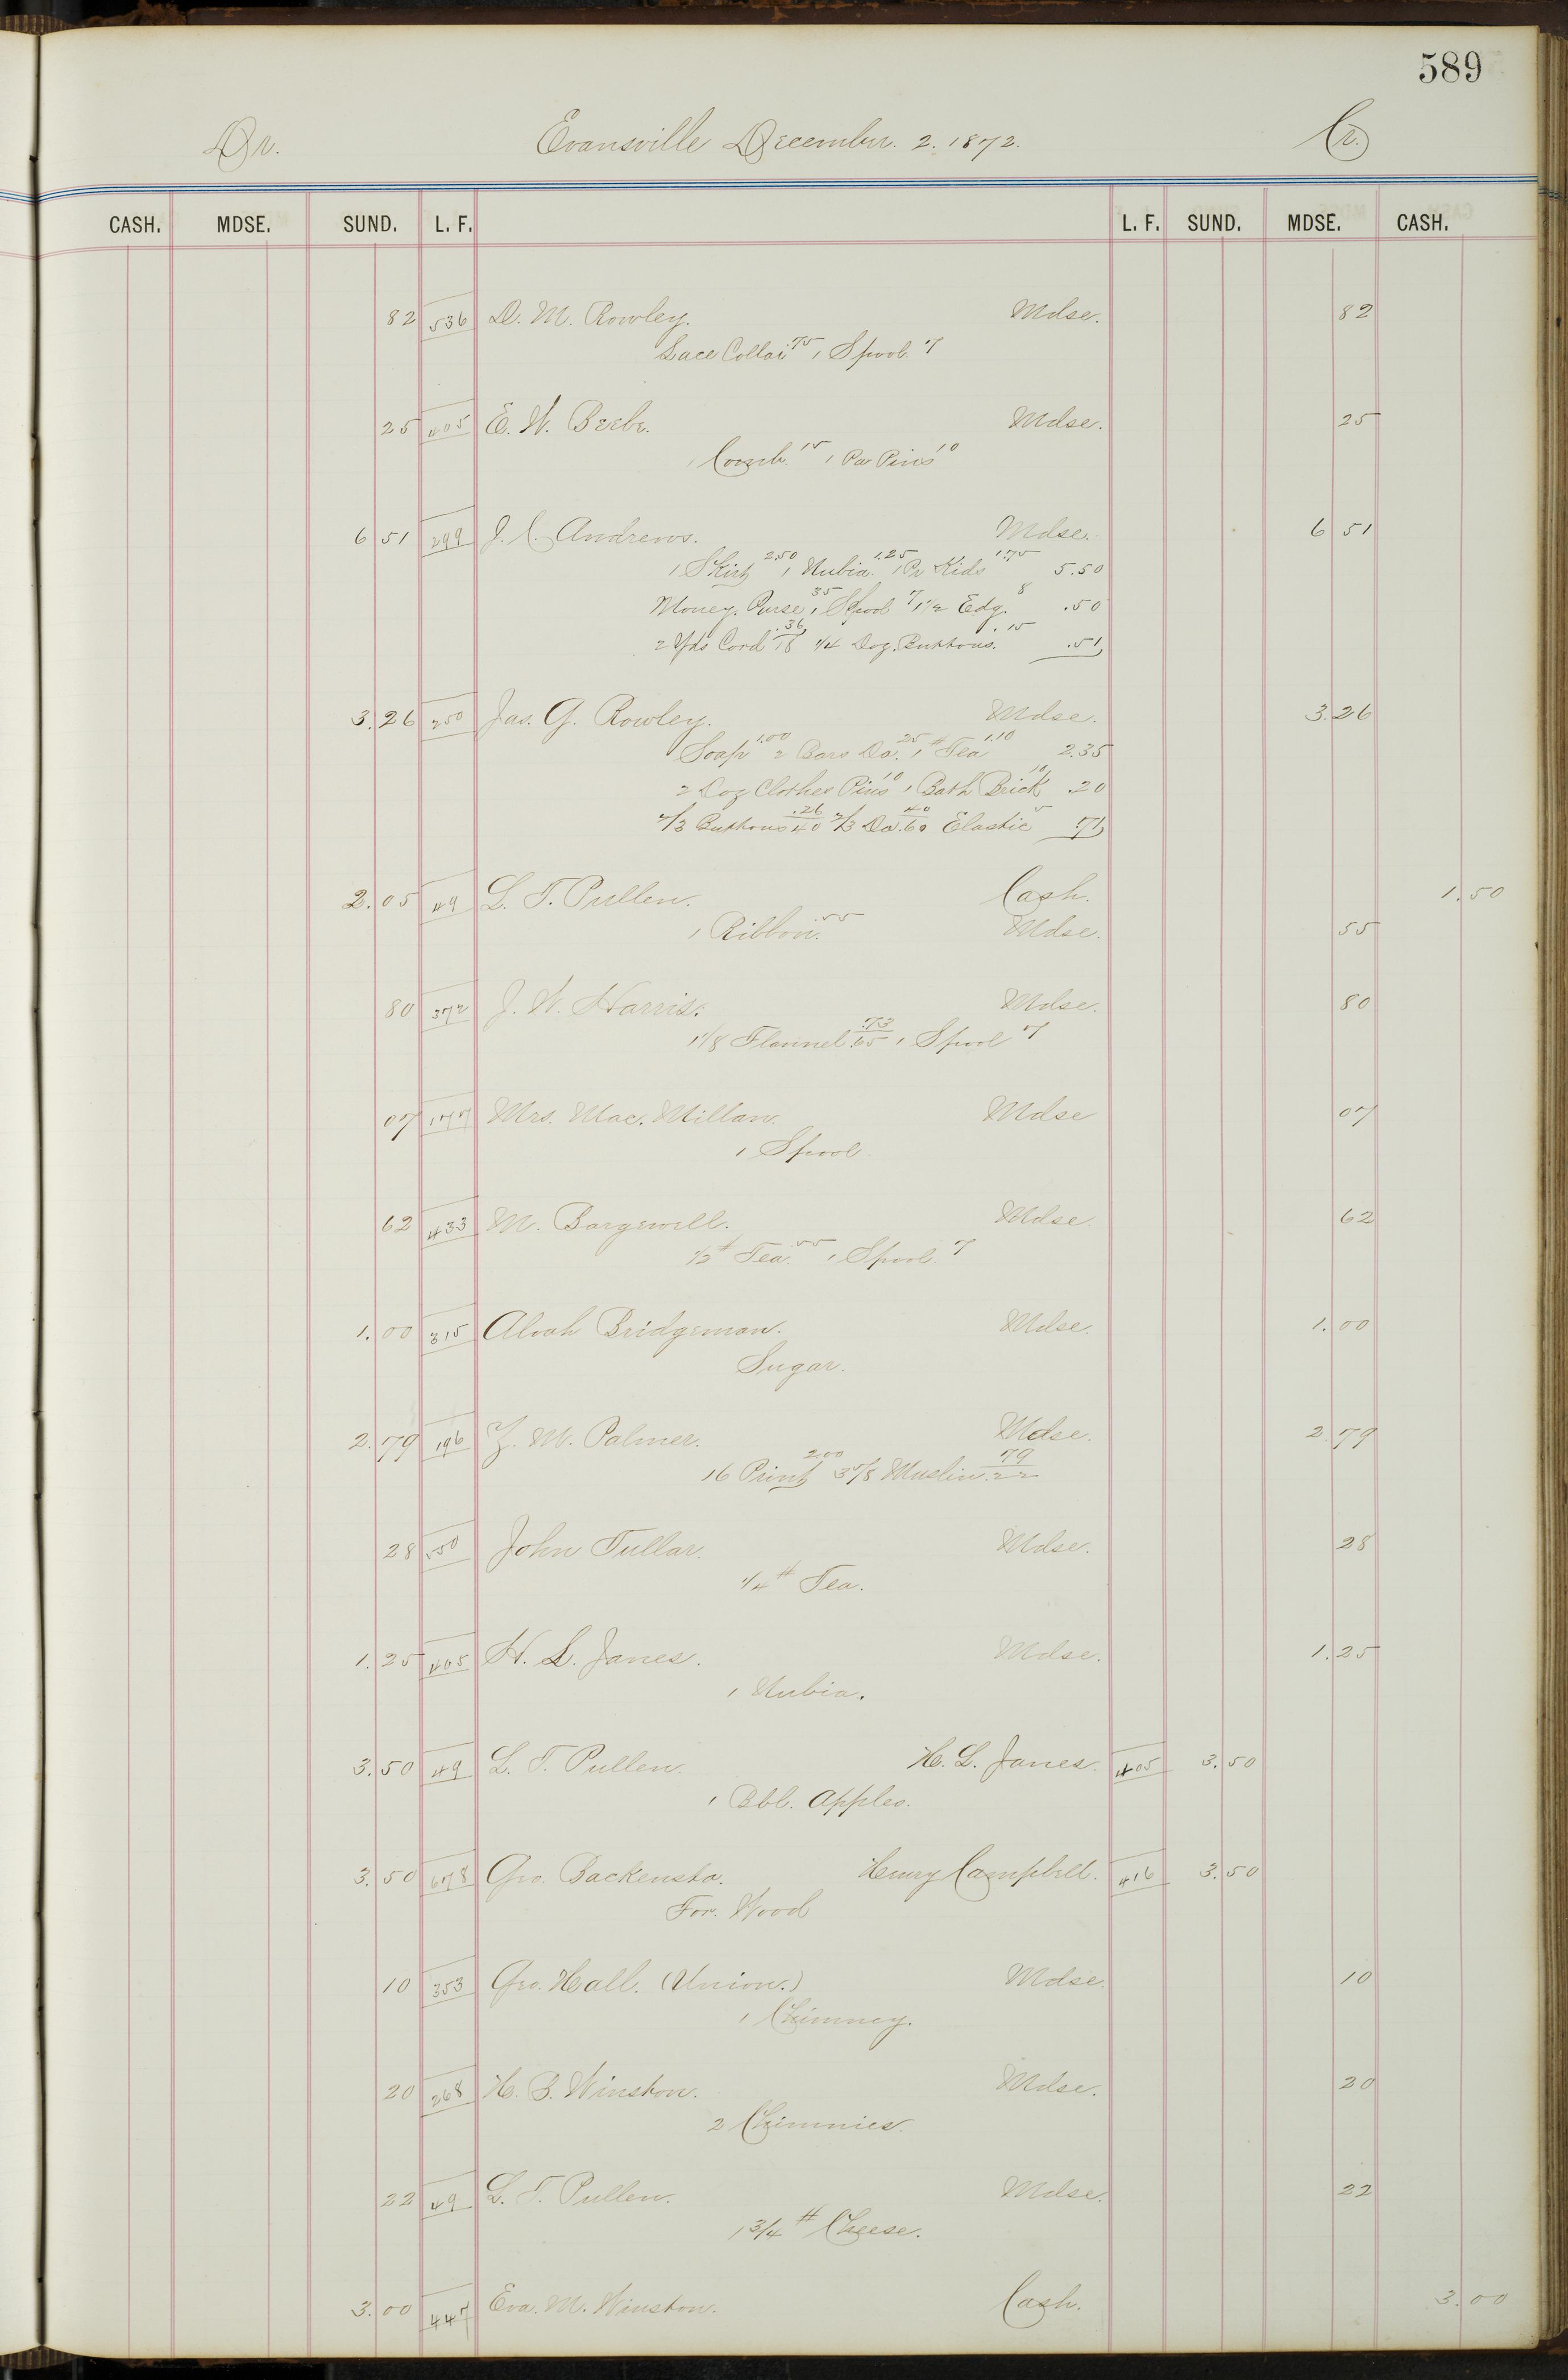 589
Dr. Evansville December. 2. 1872. Cr.
CASH. MDSE. SUND. L. F. L. F. SUND. MDSE. CASH.
82 536 D. M. Rowley. Mdse. 82
Lace Collar 75 1 Spool 7
25 405 E. W. Beebe. Mdse. 25
1 Comb. 15 1 Pa Pins 10
6 51 299 J. C. Andrews. Mdse. 6 51
1 Skirt 2.50 1 Nubia. 1.25 1 Pr Kids 1.75 5.50
Money. Purse 35 1 Spool 7 1 1/2 Edg. 8 .50
2 Yds Cord .36/18 1/4 Doz. Buttons. .15 .51
3.26 250 Jas. G. Rowley. Mdse. 3.26
Soap 1.00 2 Bars Do. 25 1 # Tea 1.10 2.35
2 Doz Clothes Pins 10 1 Bath Brick 10 .20
2/3 Buttons .26/40 2/3 Do. 40/.60 Elastic 5 .71
2.05 49 L. T. Pullen. Cash. 1.50
1 Ribbon. 55 Mdse. 55
80 372 J. W. Harris. Mdse. 80
1 1/8 Flannel .73/.65 1 Spool 7
07 177 Mrs. Mac. Millan. Mdse 07
1 Spool.
62 433 M. Bargewell. Mdse. 62
1/2 # Tea. 55 1 Spool. 7
1.00 315 Alvah Bridgeman. Mdse. 1.00
Sugar.
2.79 196 Z. M. Palmer. Mdse. 2.79
16 Print 2.00 3 5/8 Muslin 79/.22
28 550 John Tullar. Mdse. 28
1/4 # Tea.
1.25 405 H. L. Janes. Mdse. 1.25
1 Nubia.
3.50 49 L. T. Pullen. H. L. Janes. 405 3.50
1 Bbl. Apples.
3.50 678 Geo. Backensto. Henry Campbell. 416 3.50
For. Wood
10 353 Geo. Hall. (Union.) Mdse. 10
1 Chimney.
20 268 H. B. Winston. Mdse. 20
2 Chimnies.
22 49 L. T. Pullen. Mdse. 22
1 3/4 # Cheese.
3.00 447 Eva. M. Winston. Cash. 3.00